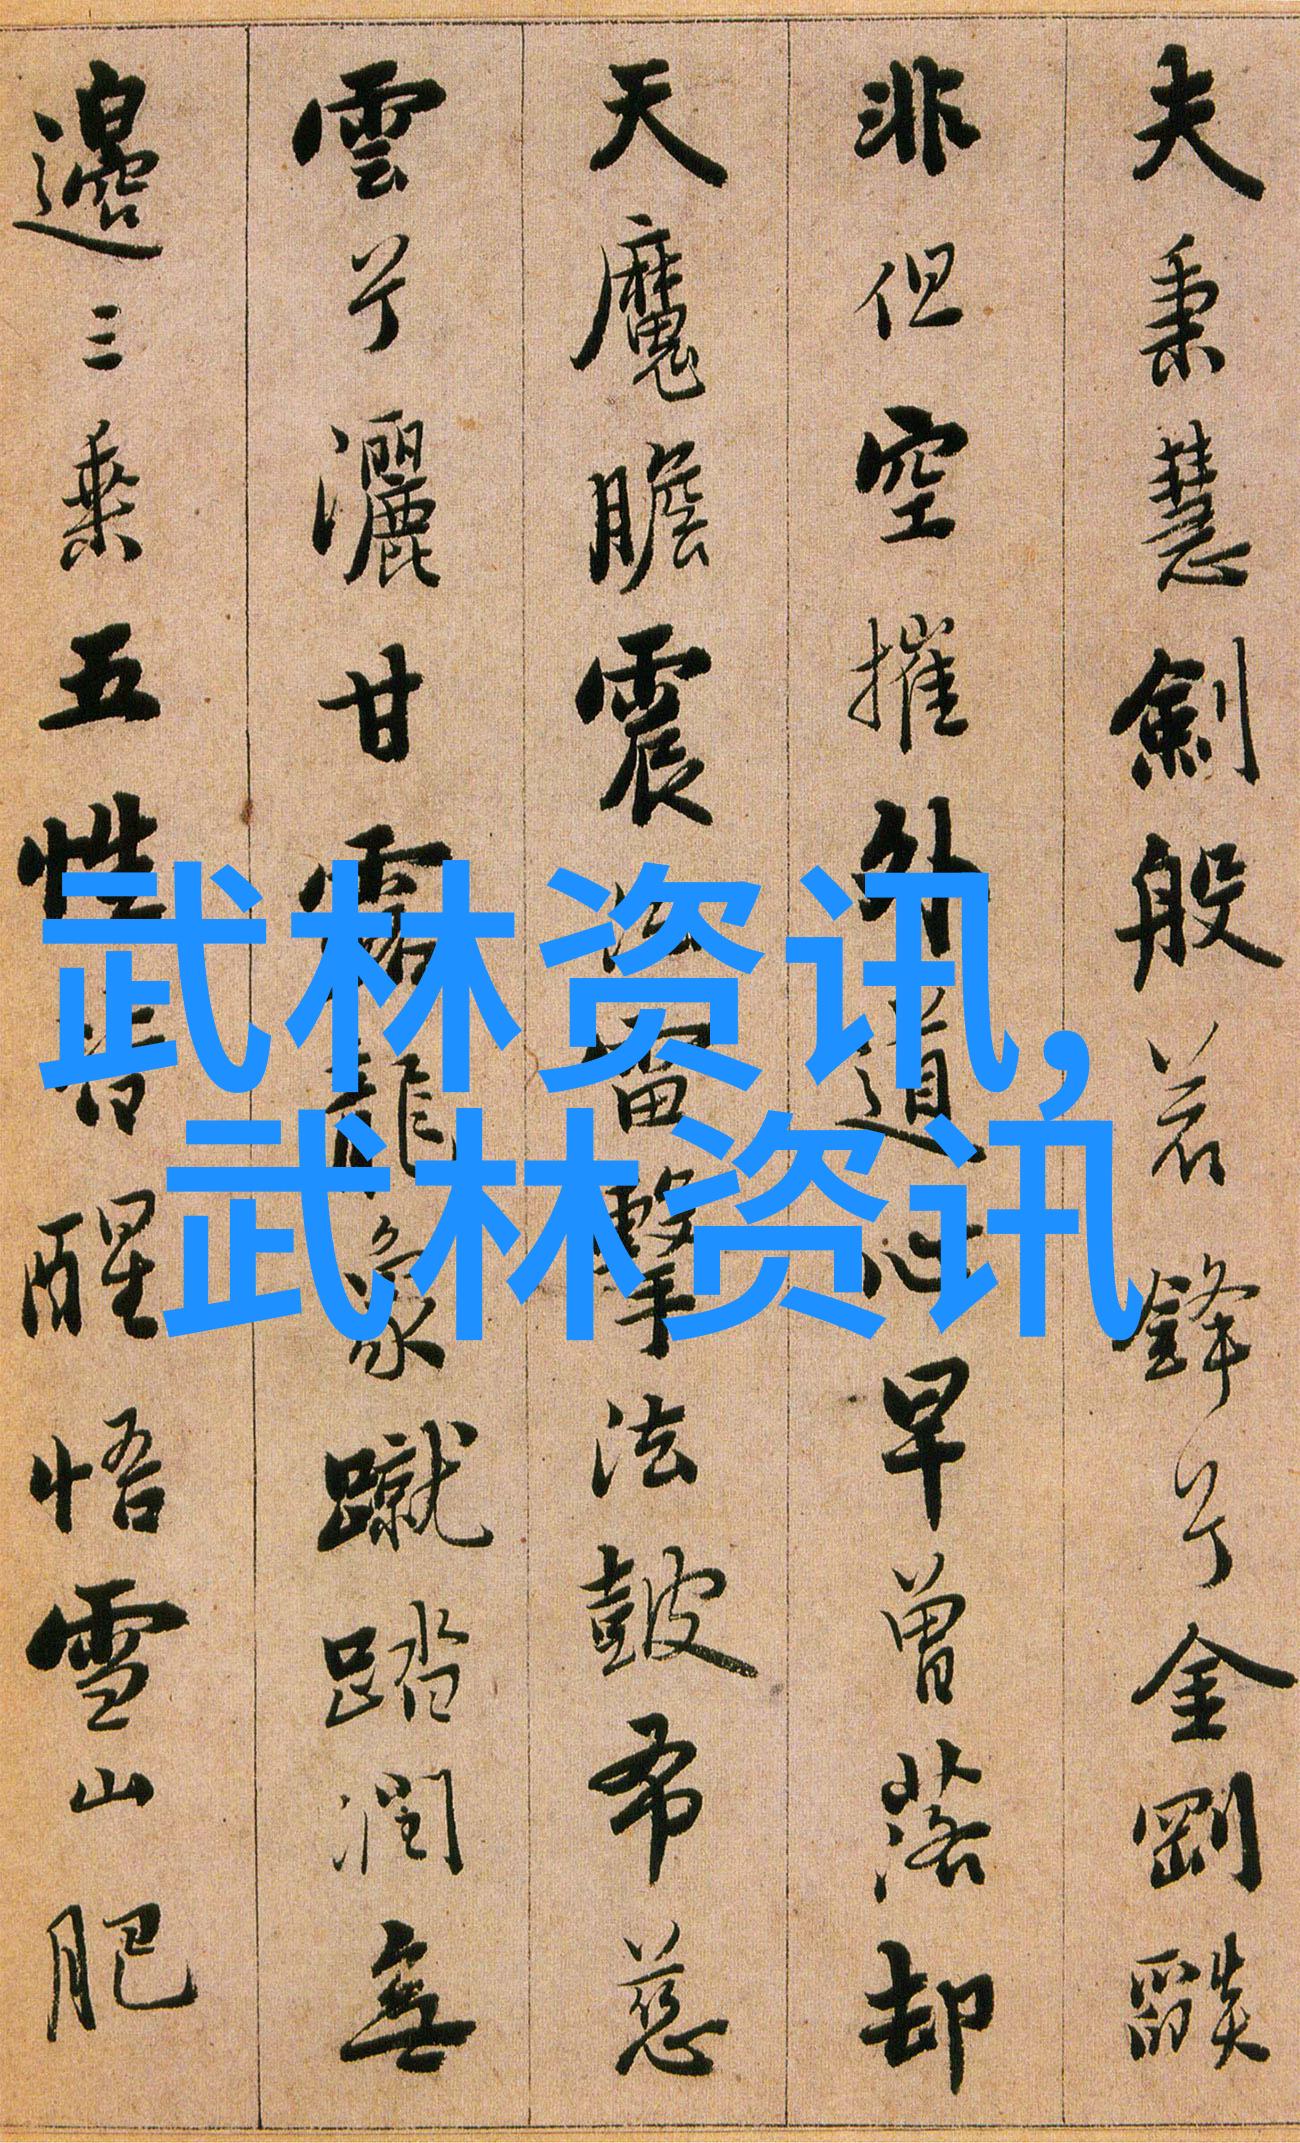 夫秉慧劒般若鋒兮金剛燄
非但空摧外道心早曾落却
天魔膽震法雷擊法皷布慈
雲兮灑甘露龍象蹴踏潤無
邊三乗五性皆醒悟雪山肥
武林资讯,
武林资讯